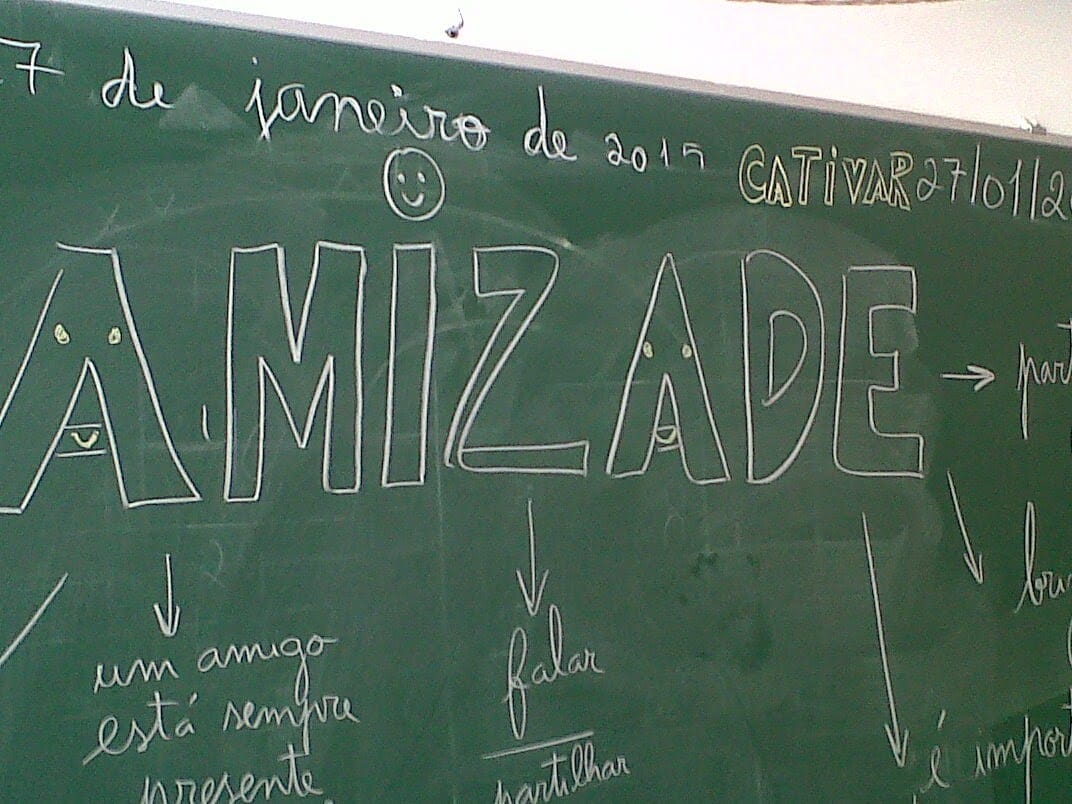 7 de janeiro de 2015
CATIVAR 27/01/2
AMIZADE
um amigo
está sempre
presente
falar
partilhar
é import